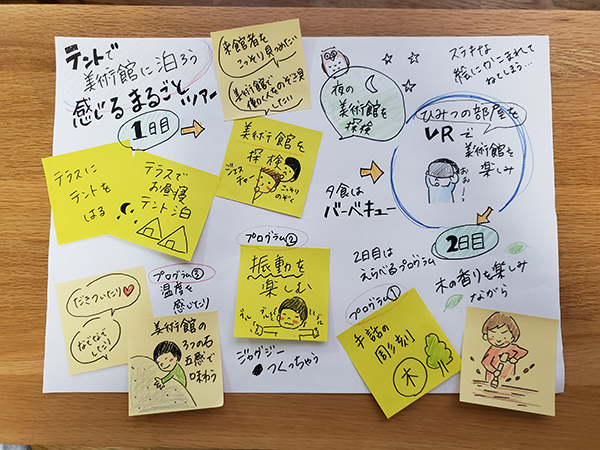 テントで
美術館に泊ろう
感じるまるごと
ツアー
1日目
来館者を
こっそり見つめたい
美術館で
働く人をのぞき見
したり
美術館を
探検
こっそり
のぞく
テラスに
テントを
はる
テラスで
お昼寝
テント泊
夜の
美術館を
探検
ステキな
絵にかこまれて
ねてしまう…
ひみつの部屋を
VRで
美術館を
楽しみ
おぉー!
夕食は
バーベキュー
2日目
2日目は
えらべるプログラム
木の香りを楽しみ
ながら
プログラム①
手話の
彫刻
木
プログラム②
振動を
楽しむ
ブルブル
ジャグジー
つくっちゃう
プログラム③
温度を
感じたり
だきついたり
なでなで
したり
美術館の
3つの石
五感で
味わう